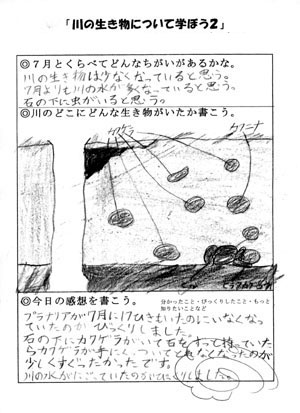 「川の生き物について学ぼう2」
◎7月とくらべてどんなちがいがあるかな。
川の生き物は少なくなっていると思う。
7月よりも川の水が多くなっていると思う。
石の下に虫がいると思う。
◎川のどこにどんな生き物がいたか書こう。
カワゲラ
カワニナ
◎今日の感想を書こう。
分かったこと・びっくりしたこと・もっと
知りたいことなど
プラナリアが7月に17ひきもいたのにいなくなっ
ていたのがびっくりしました。
石の下にカワゲラがいて石をずっと持っていた
らカワゲラが手にくっついてとれなくなったのが
少しくすぐったかったです。
川の水がにごっていたのが